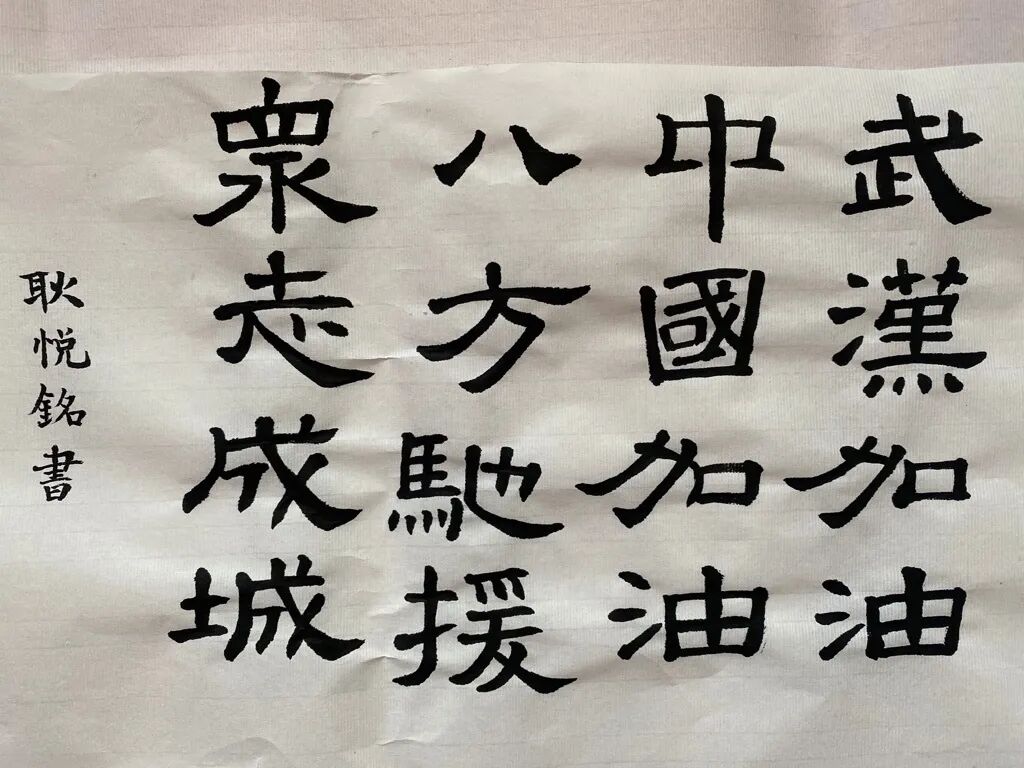 武漢加油
中國加油
八方馳援
眾志成城
耿悦銘書